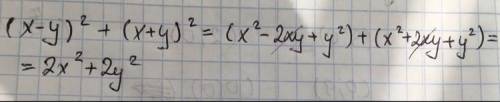 (x-y)² + (x+y)² = (x²-2xy+y²)+(x²+2xy+y²)=
= 2x²+2y²